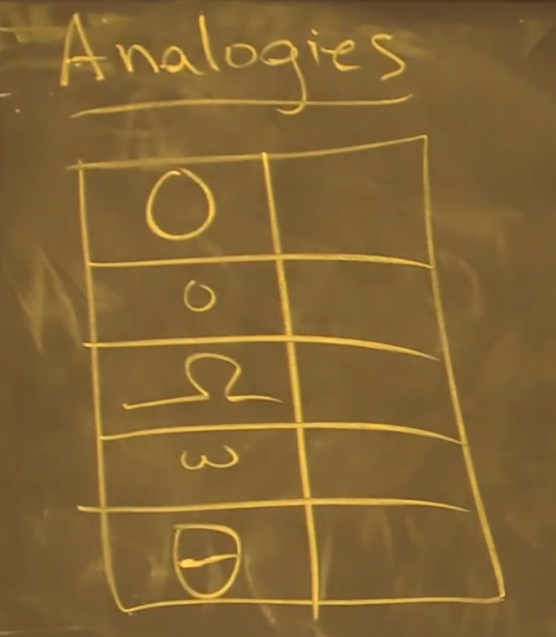 Analogies
O
o
Ω
ω
Θ